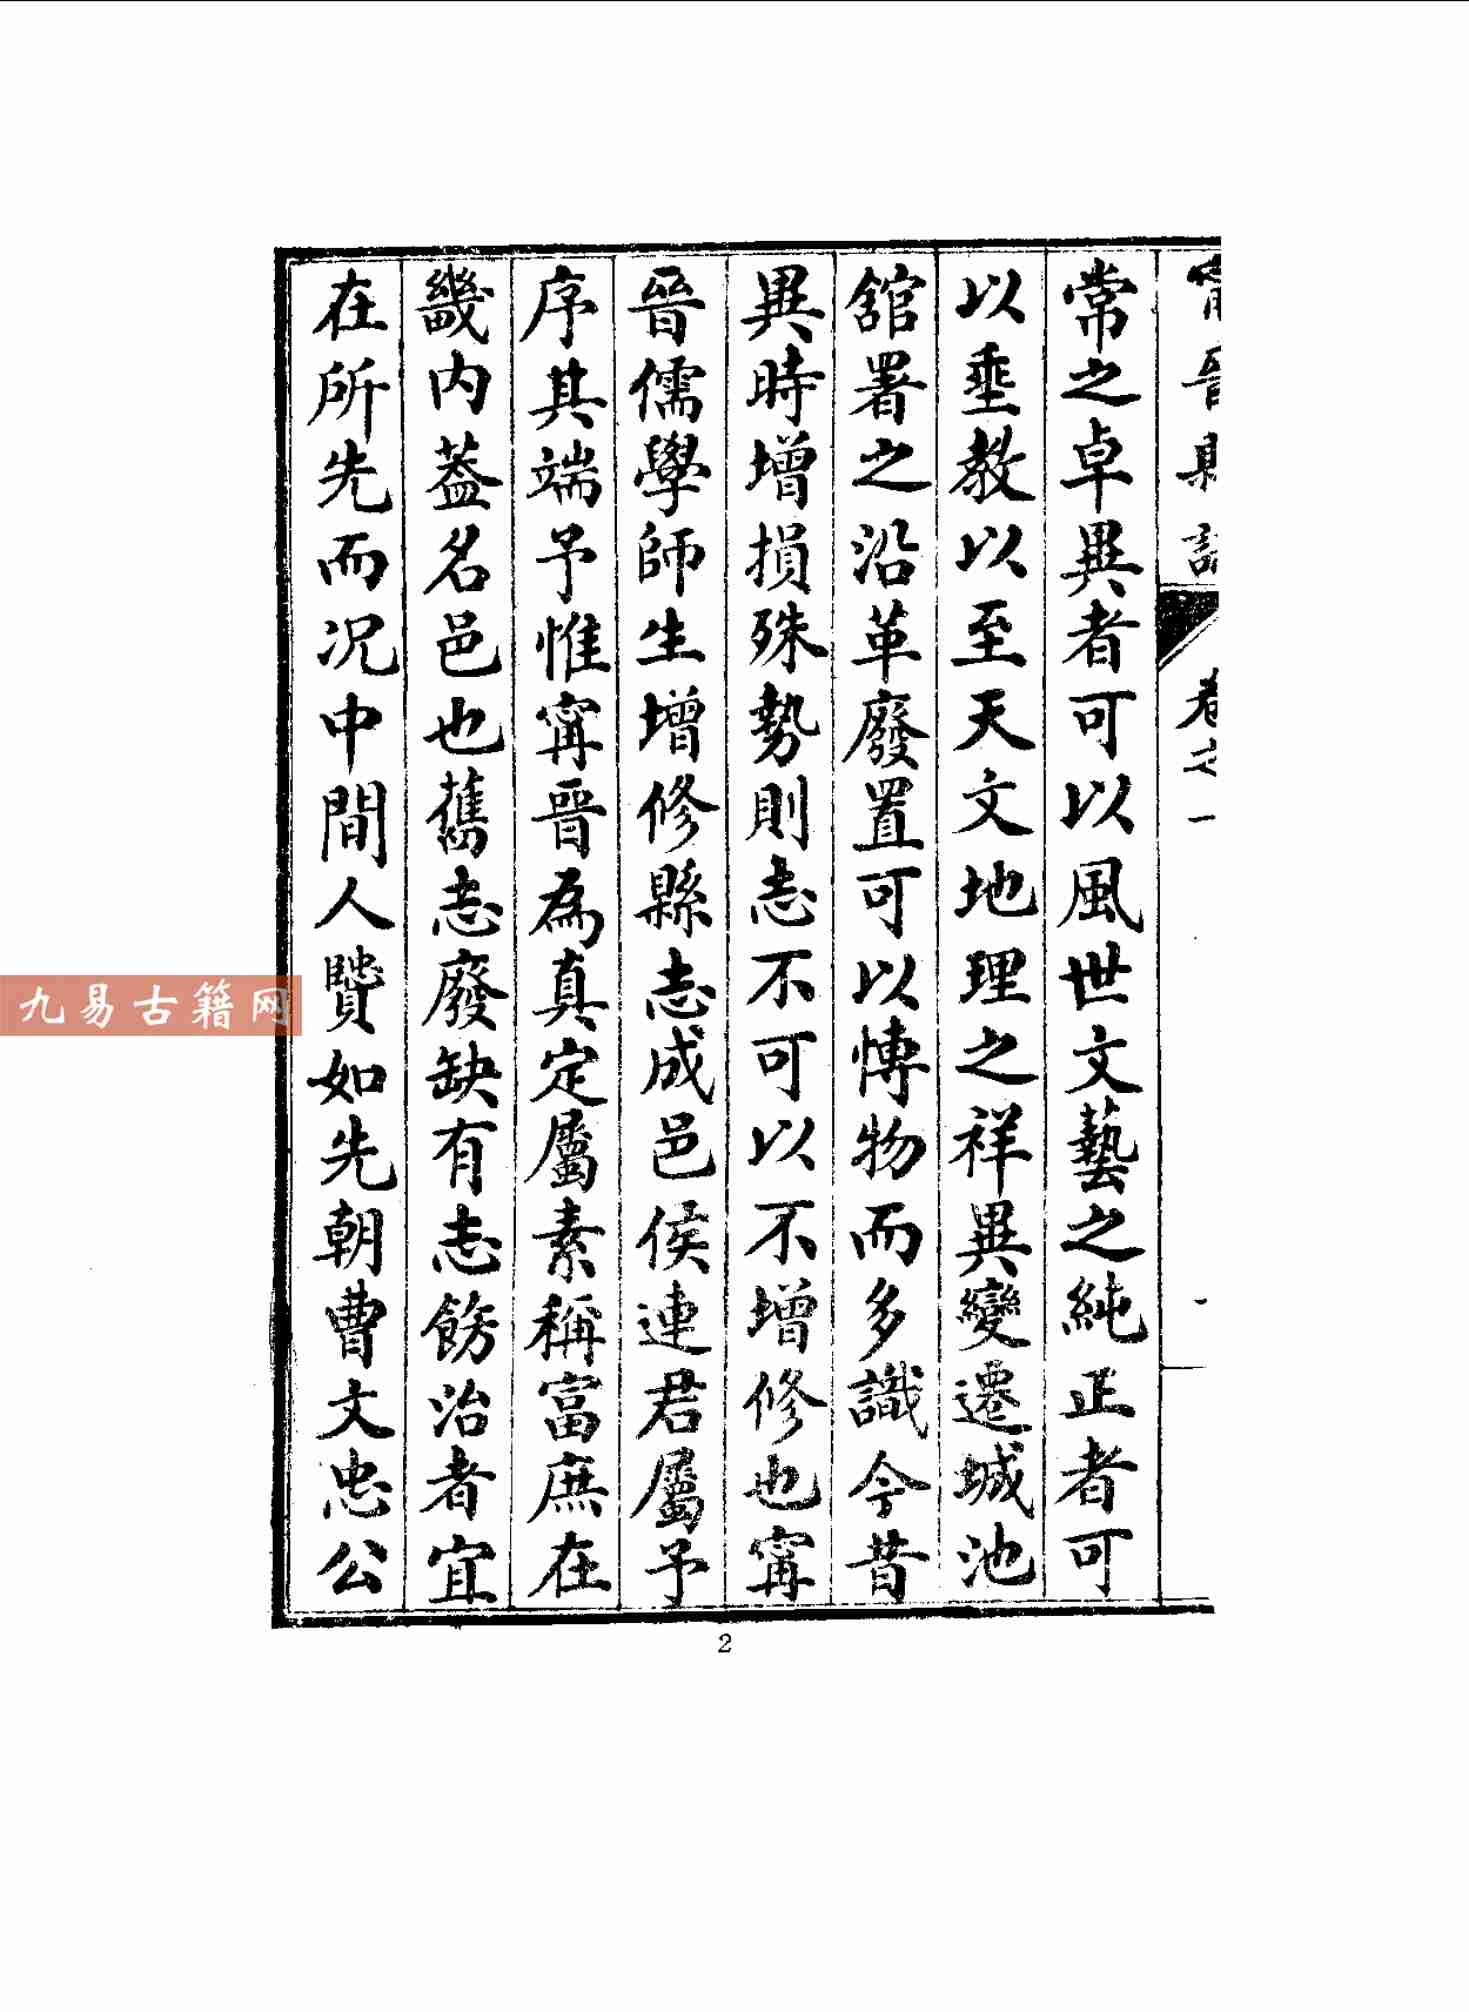 甯晉縣志 卷之一 一
常之卓異者可以風世文藝之純正者可
以垂教以至天文地理之祥異變遷城池
舘署之沿革廢置可以博物而多識今昔
異時增損殊勢則志不可以不增修也甯
晉儒學師生增修縣志成邑侯連君屬予
序其端予惟甯晉為真定屬素稱富庶在
畿内葢名邑也舊志廢缺有志餝治者宜
在所先而况中間人賢如先朝曹文忠公
2
九易古籍网